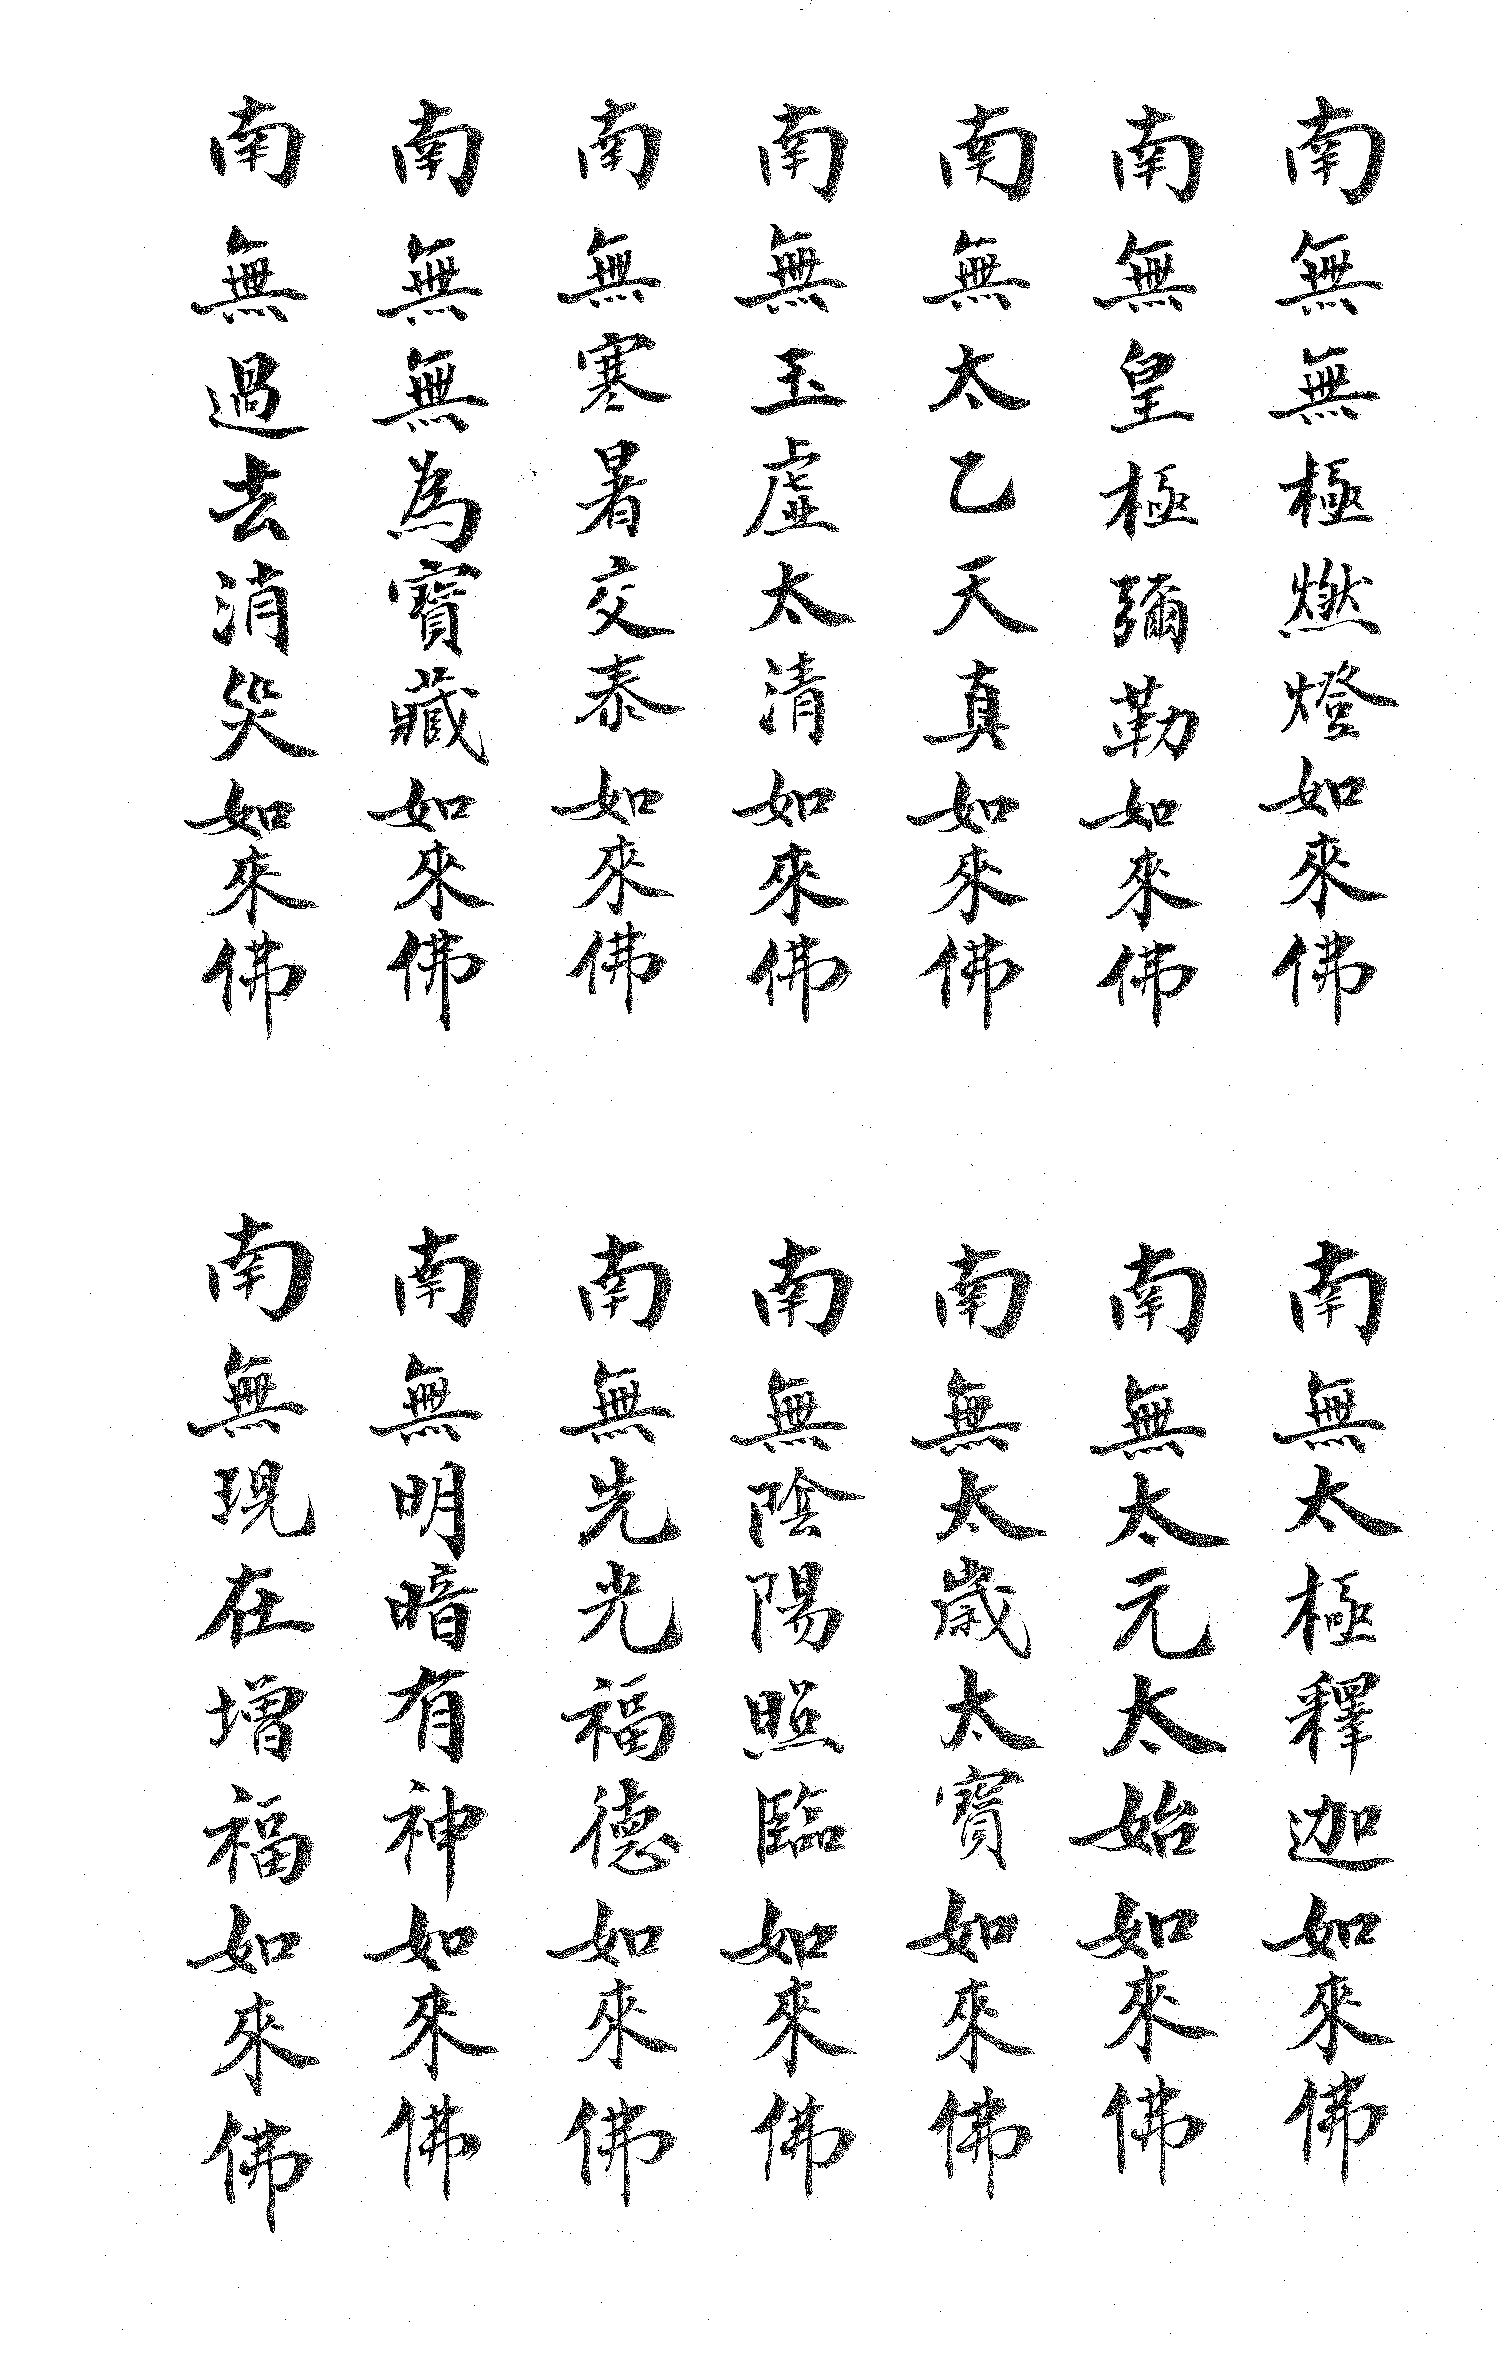 南無無極燃燈如來佛
南無太極釋迦如來佛
南無皇極彌勒如來佛
南無太元太始如來佛
南無太乙天真如來佛
南無太歲太寶如來佛
南無玉虛太清如來佛
南無陰陽照臨如來佛
南無寒暑交泰如來佛
南無先光福德如來佛
南無無為寶藏如來佛
南無明暗有神如來佛
南無過去消災如來佛
南無現在增福如來佛